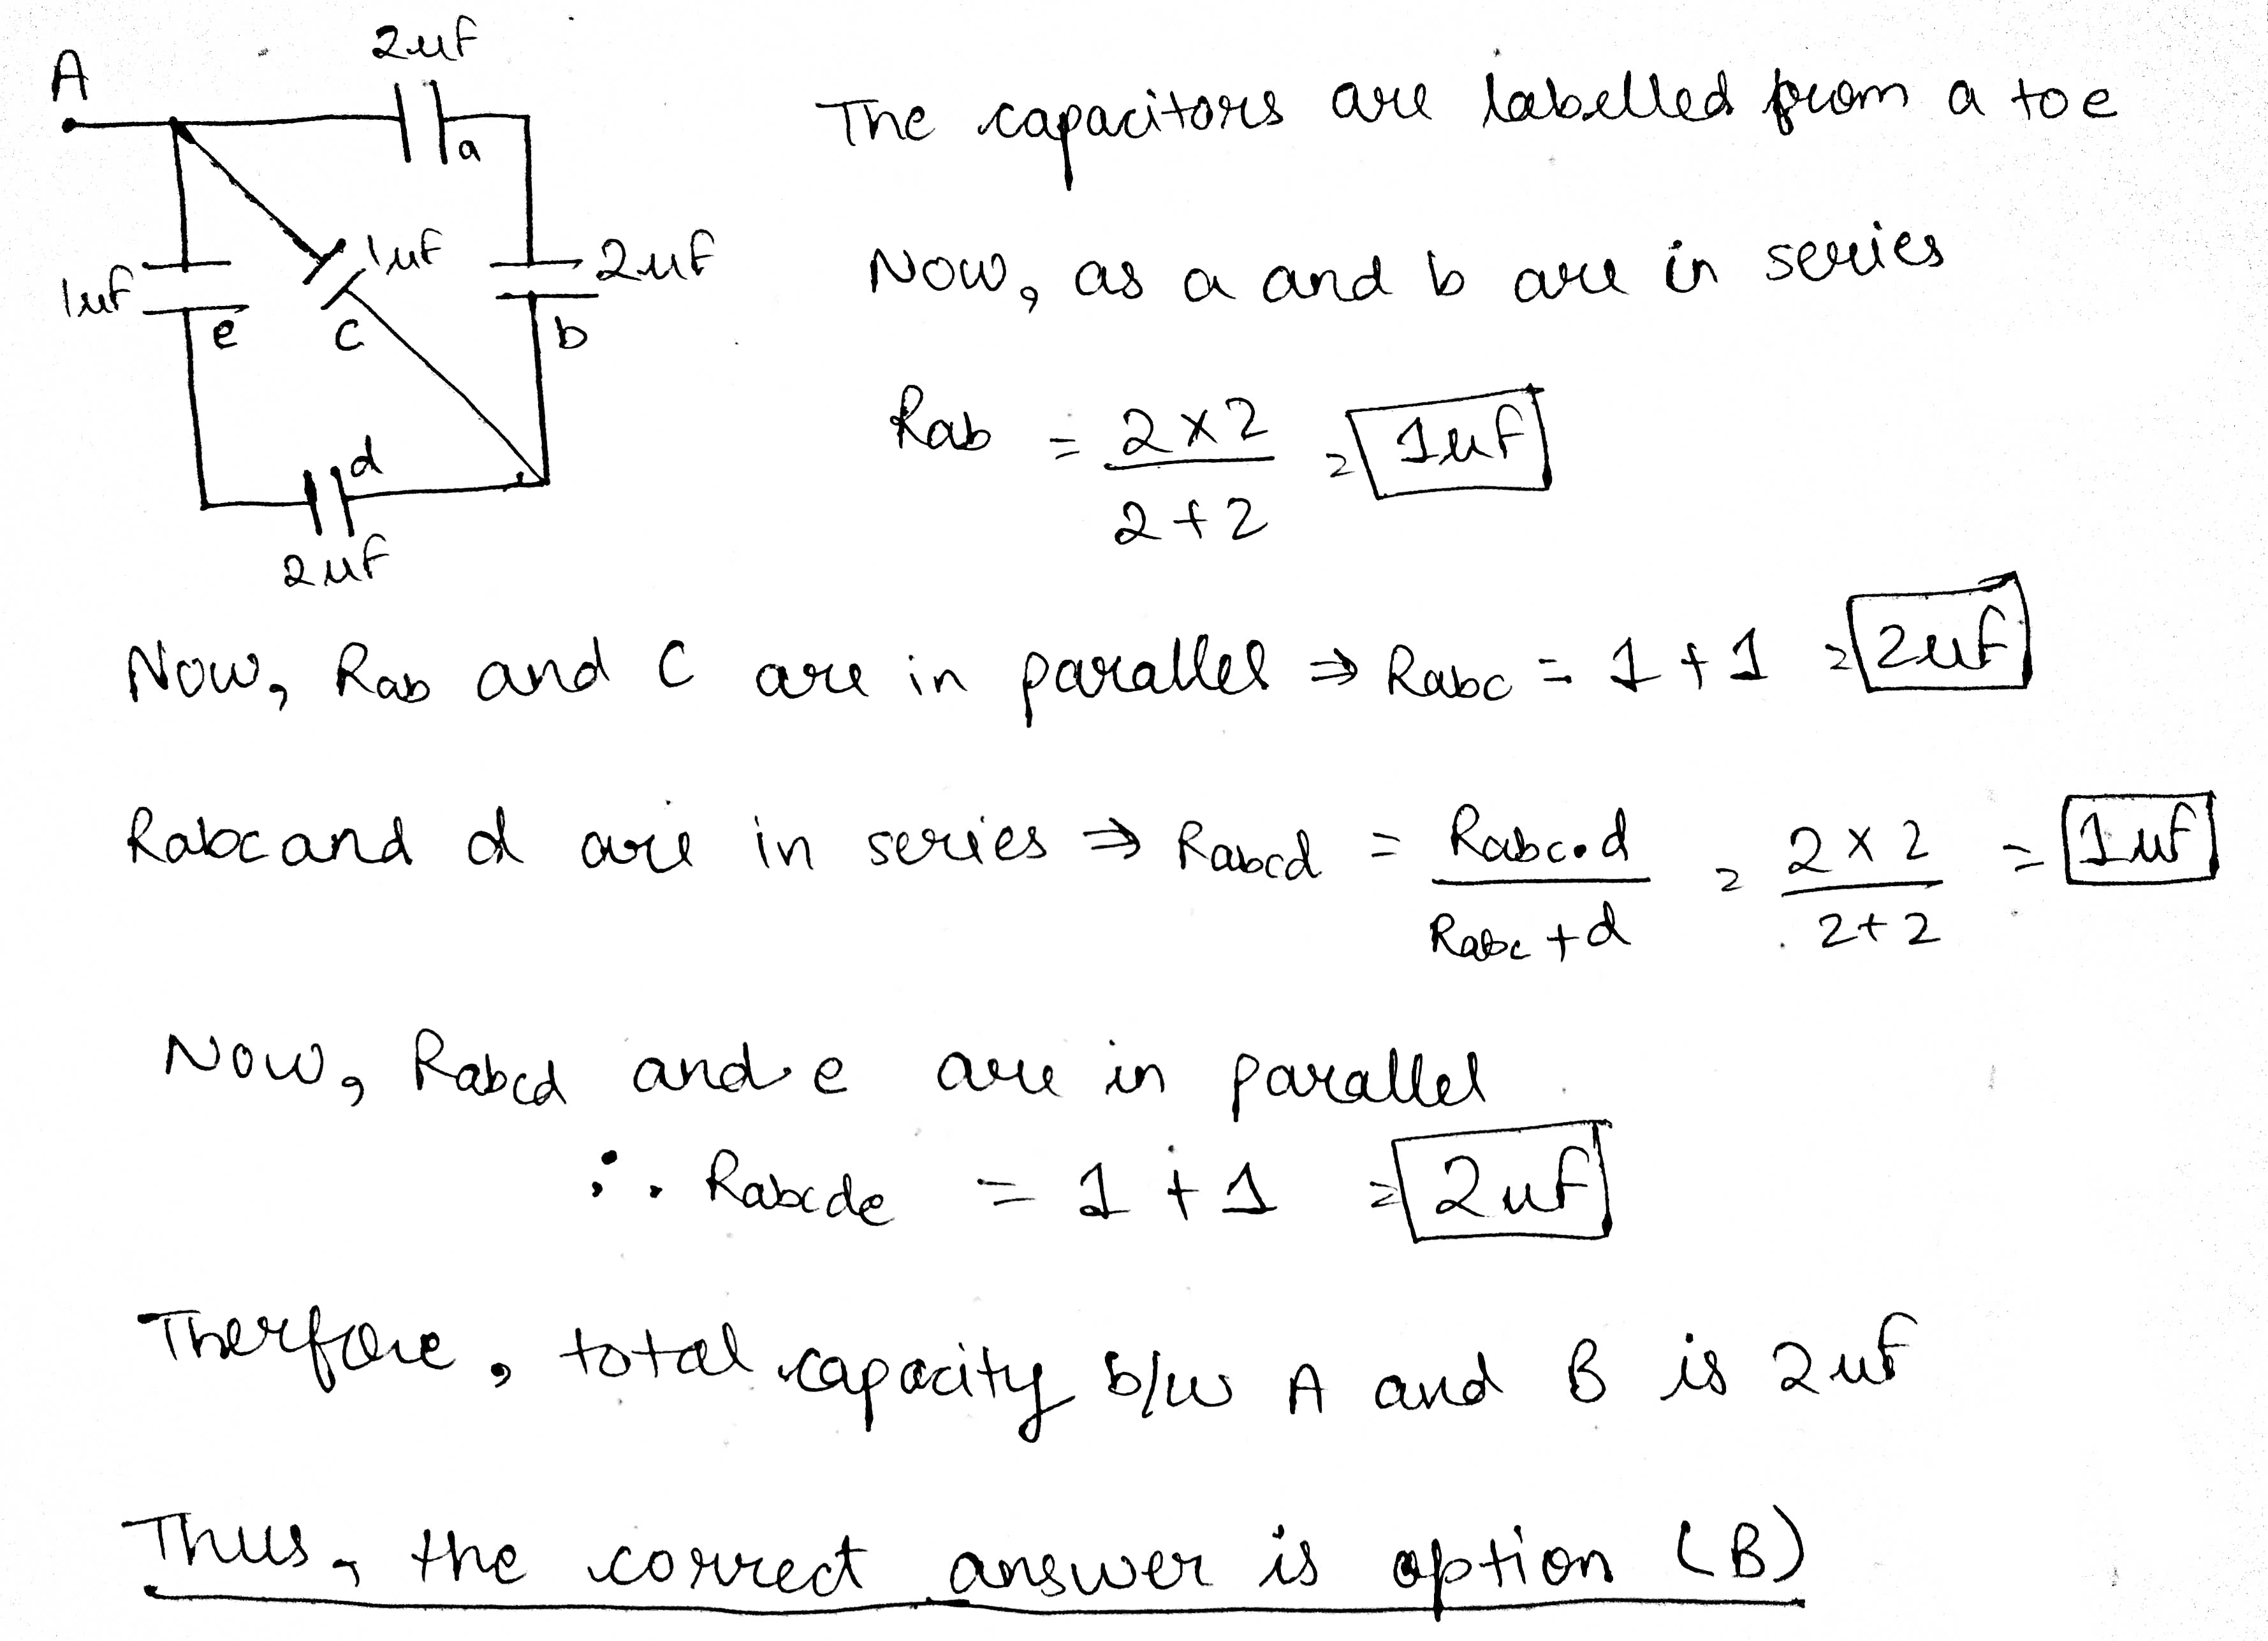 A
2uF
a
1uF
e
1uF
c
2uF
b
d
2uF
The capacitors are labelled from a to e
Now, as a and b are in series
Rab = 2 x 2 / 2 + 2 = 1uF
Now, Rab and C are in parallel ⇒ Rabc = 1 + 1 = 2uF
Rabc and d are in series ⇒ Rabcd = Rabc.d / Rabc + d = 2 x 2 / 2 + 2 = 1uF
Now, Rabcd and e are in parallel
∴ Rabcde = 1 + 1 = 2uF
Therfore, total capacity b/w A and B is 2uF
Thus, the correct answer is option (B)